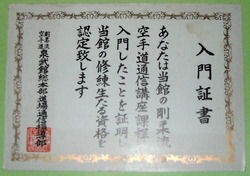 入門証書
あなたは当館の剛柔流
空手道通信講座課程に
入門したことを証明し
当館の修練生たる資格を
認定致します
武館総本部道場通信指導部